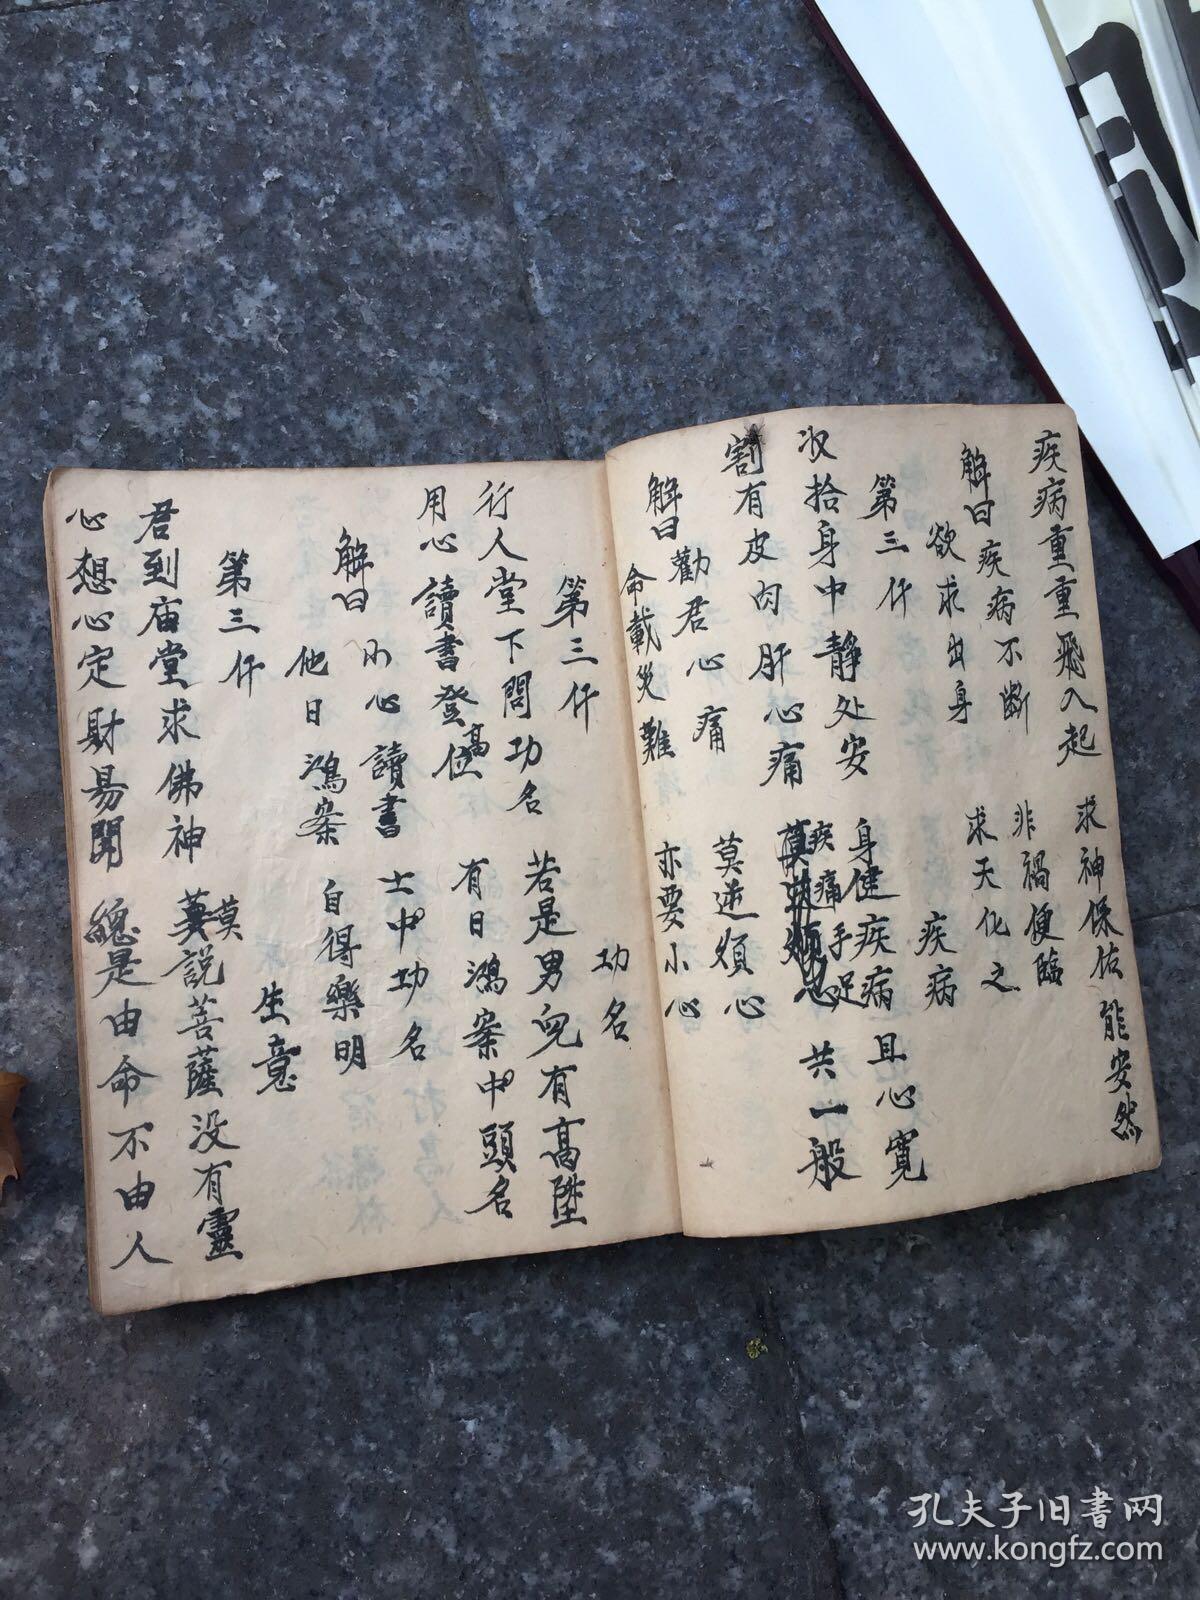 疾病重重飛入起 求神保佑能安然
解曰疾病不斷 非禍便臨
欲求出身 求天化之
第三仟 疾病
收拾身中靜处安 身健疾病且心寬
割有皮肉肝心痛 疾痛手足共一般
解曰勸君心痛 莫逆煩心
命載災難 亦要小心
第三仟 功名
行人堂下問功名 若是男兒有高陞
用心讀書登高位 有日鴻案中頭名
解曰小心讀書 士中功名
他日鴻案 自得樂明
第三仟 生意
君到庙堂求佛神 莫説菩薩没有靈
心想心定財易聞 總是由命不由人
孔夫子旧書网
www.kongfz.com